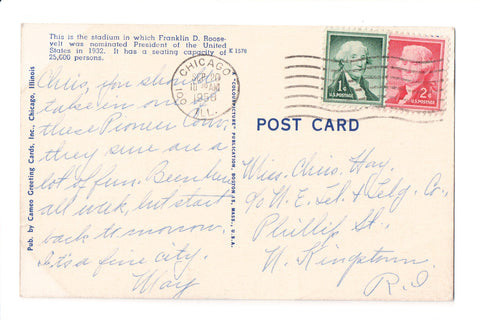 This is the stadium in which Franklin D. Roose-
velt was nominated President of the United
States in 1932. It has a seating capacity of
25,000 persons.
K 1578
should
take in one
these Pioneer Conv.
they sure are a
lot of fun. Been here
all week, but start
back to morrow.
It's a fine city.
May
Pub. by Cameo Greeting Cards, Inc., Chicago, Illinois
"COLOURPICTURE" PUBLICATION, BOSTON 15, MASS., U.S.A.
CHICAGO
SEP 20
10 AM
ILL.
1¢
U.S. POSTAGE
2¢
U.S. POSTAGE
POST CARD
Miss Hoy,
c/o N.E. Tel. & Telg. Co.,
Phillip St.,
N. Kingstown
R.I